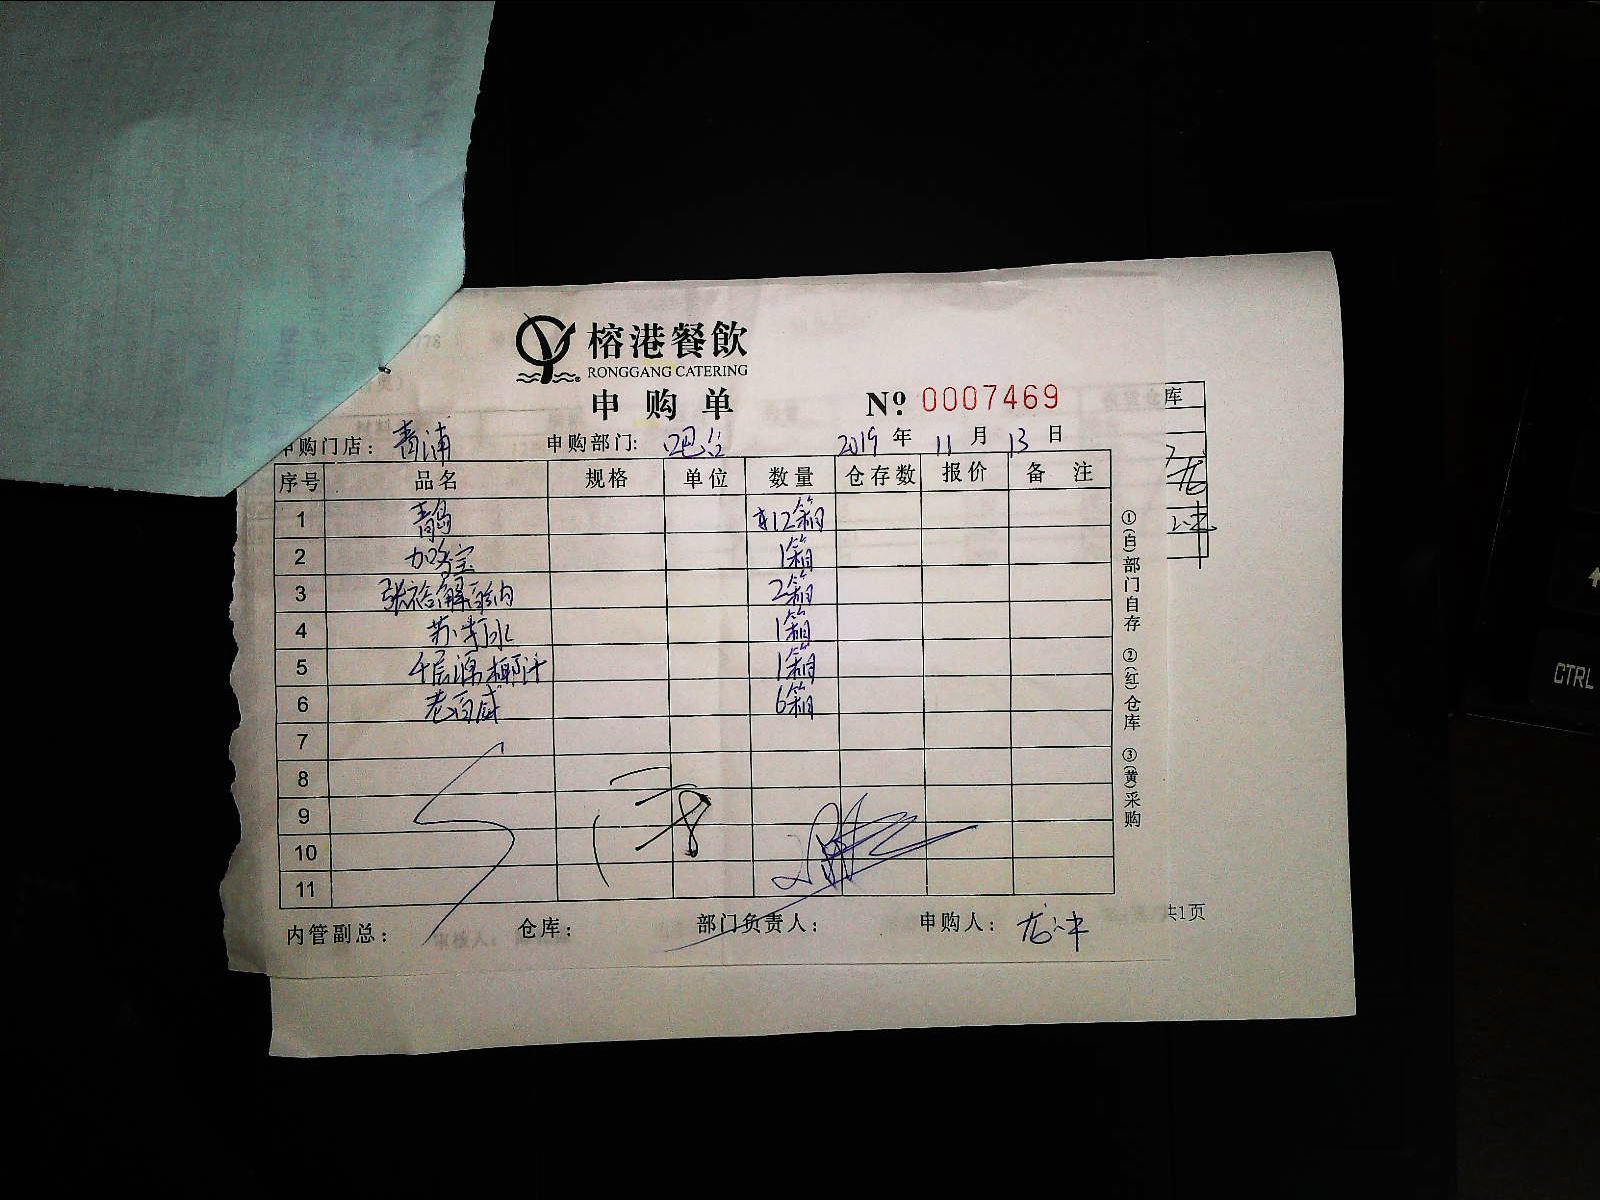 榕港餐飲
RONGGANG CATERING
申购单 Nº: 0007469
申购门店: 青浦 申购部门: 吧台 2019年11月13日
序号 品名 规格 单位 数量 仓存数 报价 备注
1 青岛 12箱
2 加多宝 1箱
3 张裕解百纳 2箱
4 苏打水 1箱
5 千层涌椰汁 1箱
6 老百威 6箱
7
8
9
10
11
内管副总: 仓库: 部门负责人: 申购人:
①(白)部门自存 ②(红)仓库 ③(黄)采购
库
共1页
CTRL